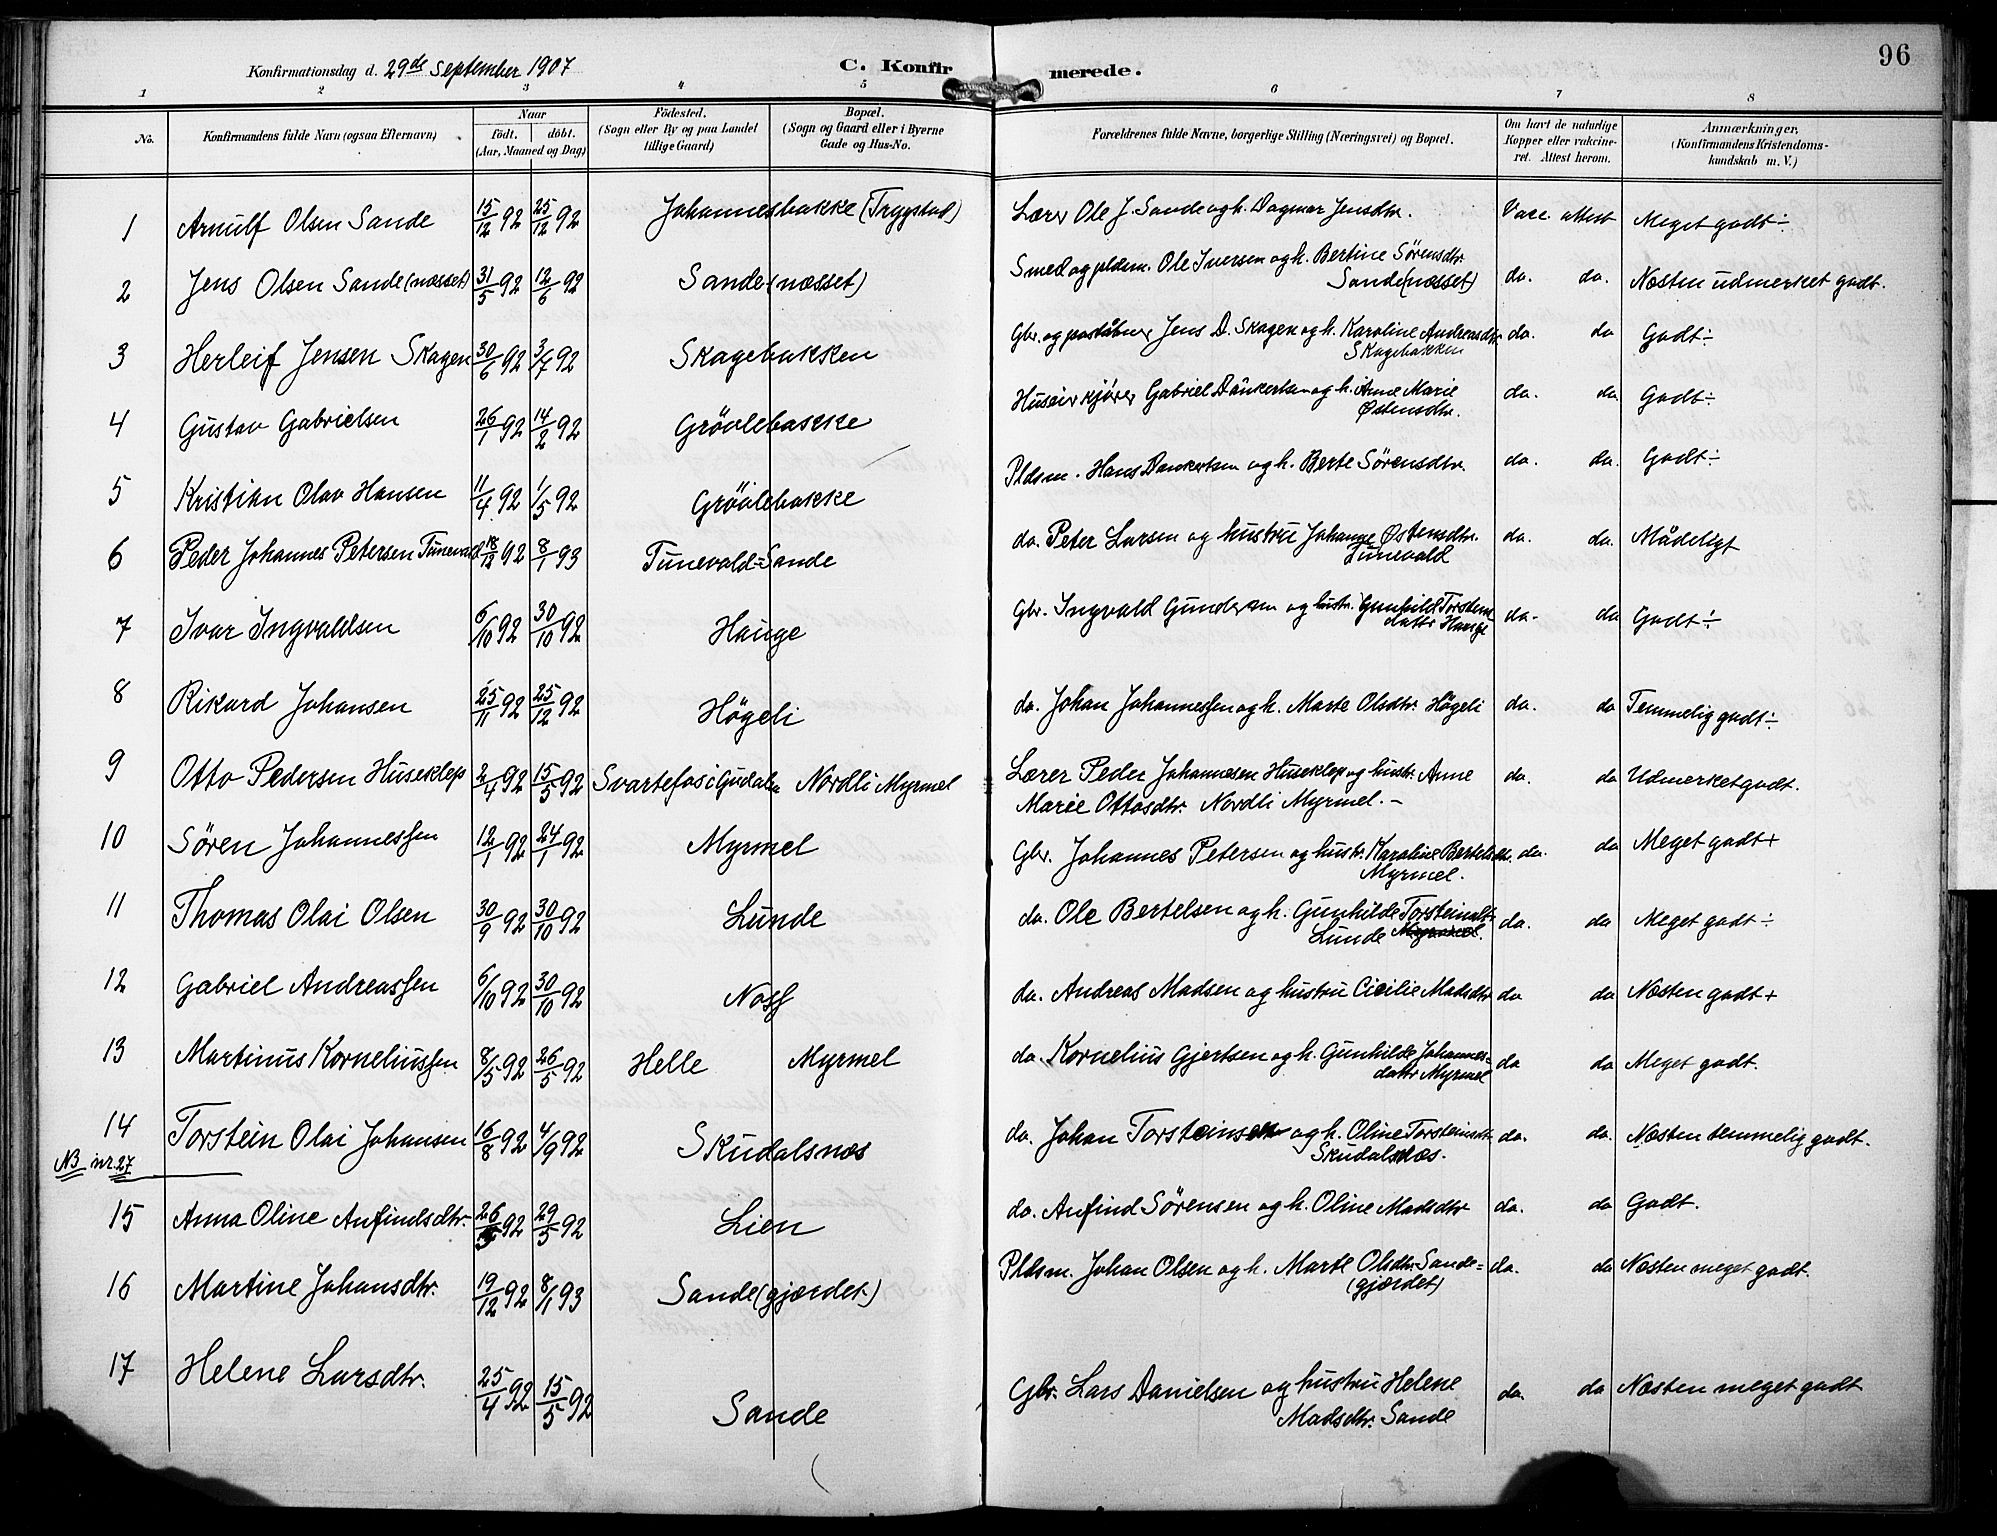 96
Konfirmationsdag d. 29de September 1907 C. Konfirmerede.
1 2 3 4 5 6 7 8
No. Konfirmandens fulde Navn (ogsaa Efternavn) Naar födt. döbt. (Aar, Maaned og Dag) Födested. (Sogn eller By og paa Landet tillige Gaard) Bopæl. (Sogn og Gaard eller i Byerne Gade og Hus-No. Forældrenes fulde Navne, borgerlige Stilling (Næringsvei) og Bopæl. Om havt de naturlige Kopper eller vakcineret. Attest herom. Anmærkninger. (Konfirmandens Kristendomskundskab m. V.)
1 Arnulf Olsen Sande 15/12 92 25/12 92 Johannesbakke (Trygstad) Lærer Ole J. Sande og h. Dagmar Jensdtr. Vacc. attest Meget godt ÷
2 Jens Olsen Sande (næsset) 31/5 92 12/6 92 Sande (næsset) Smed og pldsm. Ole Iversen og h. Bertine Sörensdtr.
Sande (næsset) do. do. Næsten udmerket godt.
3 Herleif Jensen Skagen 30/6 92 3/7 92 Skagebakken Gbr. og poståbner Jens D. Skagen og h. Karoline Andreasdtr.
Skagebakken do. do Godt ÷
4 Gustav Gabrielsen 26/1 92 14/2 92 Grövlebakke Gabriel Dankertsen og h. Anne Marie
Østensdtr. do. do Godt ÷
5 Kristian Olav Hansen 11/4 92 1/5 92 Grövlebakke Pldsm. Hans Dankertsen og h. Berte Sörensdtr. do. do. Godt ÷
6 Peder Johannes Petersen Tunevald 18/12 92 8/1 93 Tunevald-Sande do. Peter Larsen og hustru Johanne Østensdtr.
Tunevald do. do. Mådeligt
7 Ivar Ingvaldsen 6/10 92 30/10 92 Hauge Gbr. Ingvald Gundersen og hustr. Gunhild Torsteins
dattr Hauge do. do Godt ÷
8 Rikard Johansen 25/11 92 25/12 92 Högeli do. Johan Johannessen og h. Marte Olsdtr. Högeli do. do Temmelig godt ÷
9 Otto Pedersen Huseklep 2/4 92 15/5 92 Svartefos i Gudalen Nordli Myrmel Lærer Peder Johannesen Huseklep og hustr. Anne
Marie Ottosdtr. Nordli Myrmel. – do. do Udmerket godt.
10 Sören Johannessen 12/1 92 24/1 92 Myrmel Gbr. Johannes Petersen og hustr. Karoline Bertelsdtr.
Myrmel. do. do Meget godt +
11 Thomas Olai Olsen 30/9 92 30/10 92 Lunde do. Ole Bertelsen og h. Gunhilde Torsteinsdtr
Lunde Myrmel. do. do Meget godt ÷
12 Gabriel Andreassen 6/10 92 30/10 92 Noss do. Andreas Madsen og hustru Cicilie Madsdtr do do Næsten godt +
13 Martinus Korneliussen 8/5 92 26/5 92 Helle Myrmel do. Kornelius Gjertsen og h. Gunhilde Johannes-
dattr Myrmel do do Meget godt.
14 Torstein Olai Johansen 16/8 92 4/9 92 Skudalsnæs do. Johan Torsteinsen og h. Oline Torsteinsdtr.
Skudalsnæs. do. do. Næsten temmelig godt.
NB nr. 27
15 Anna Oline Anfindsdtr. 26/5 92 29/5 92 Lien do. Anfind Sörensen og h. Oline Madsdtr do. do Godt.
16 Martine Johansdtr. 19/12 92 8/1 93 Sande (gjærdet) Pldsm. Johan Olsen og h. Marte Olsdtr. Sande-
(gjærdet) do. do Næsten meget godt.
17 Helene Larsdtr. 25/4 92 15/5 92 Sande Gbr. Lars Danielsen og hustru Helene
Madsdtr. Sande do. do Næsten meget godt